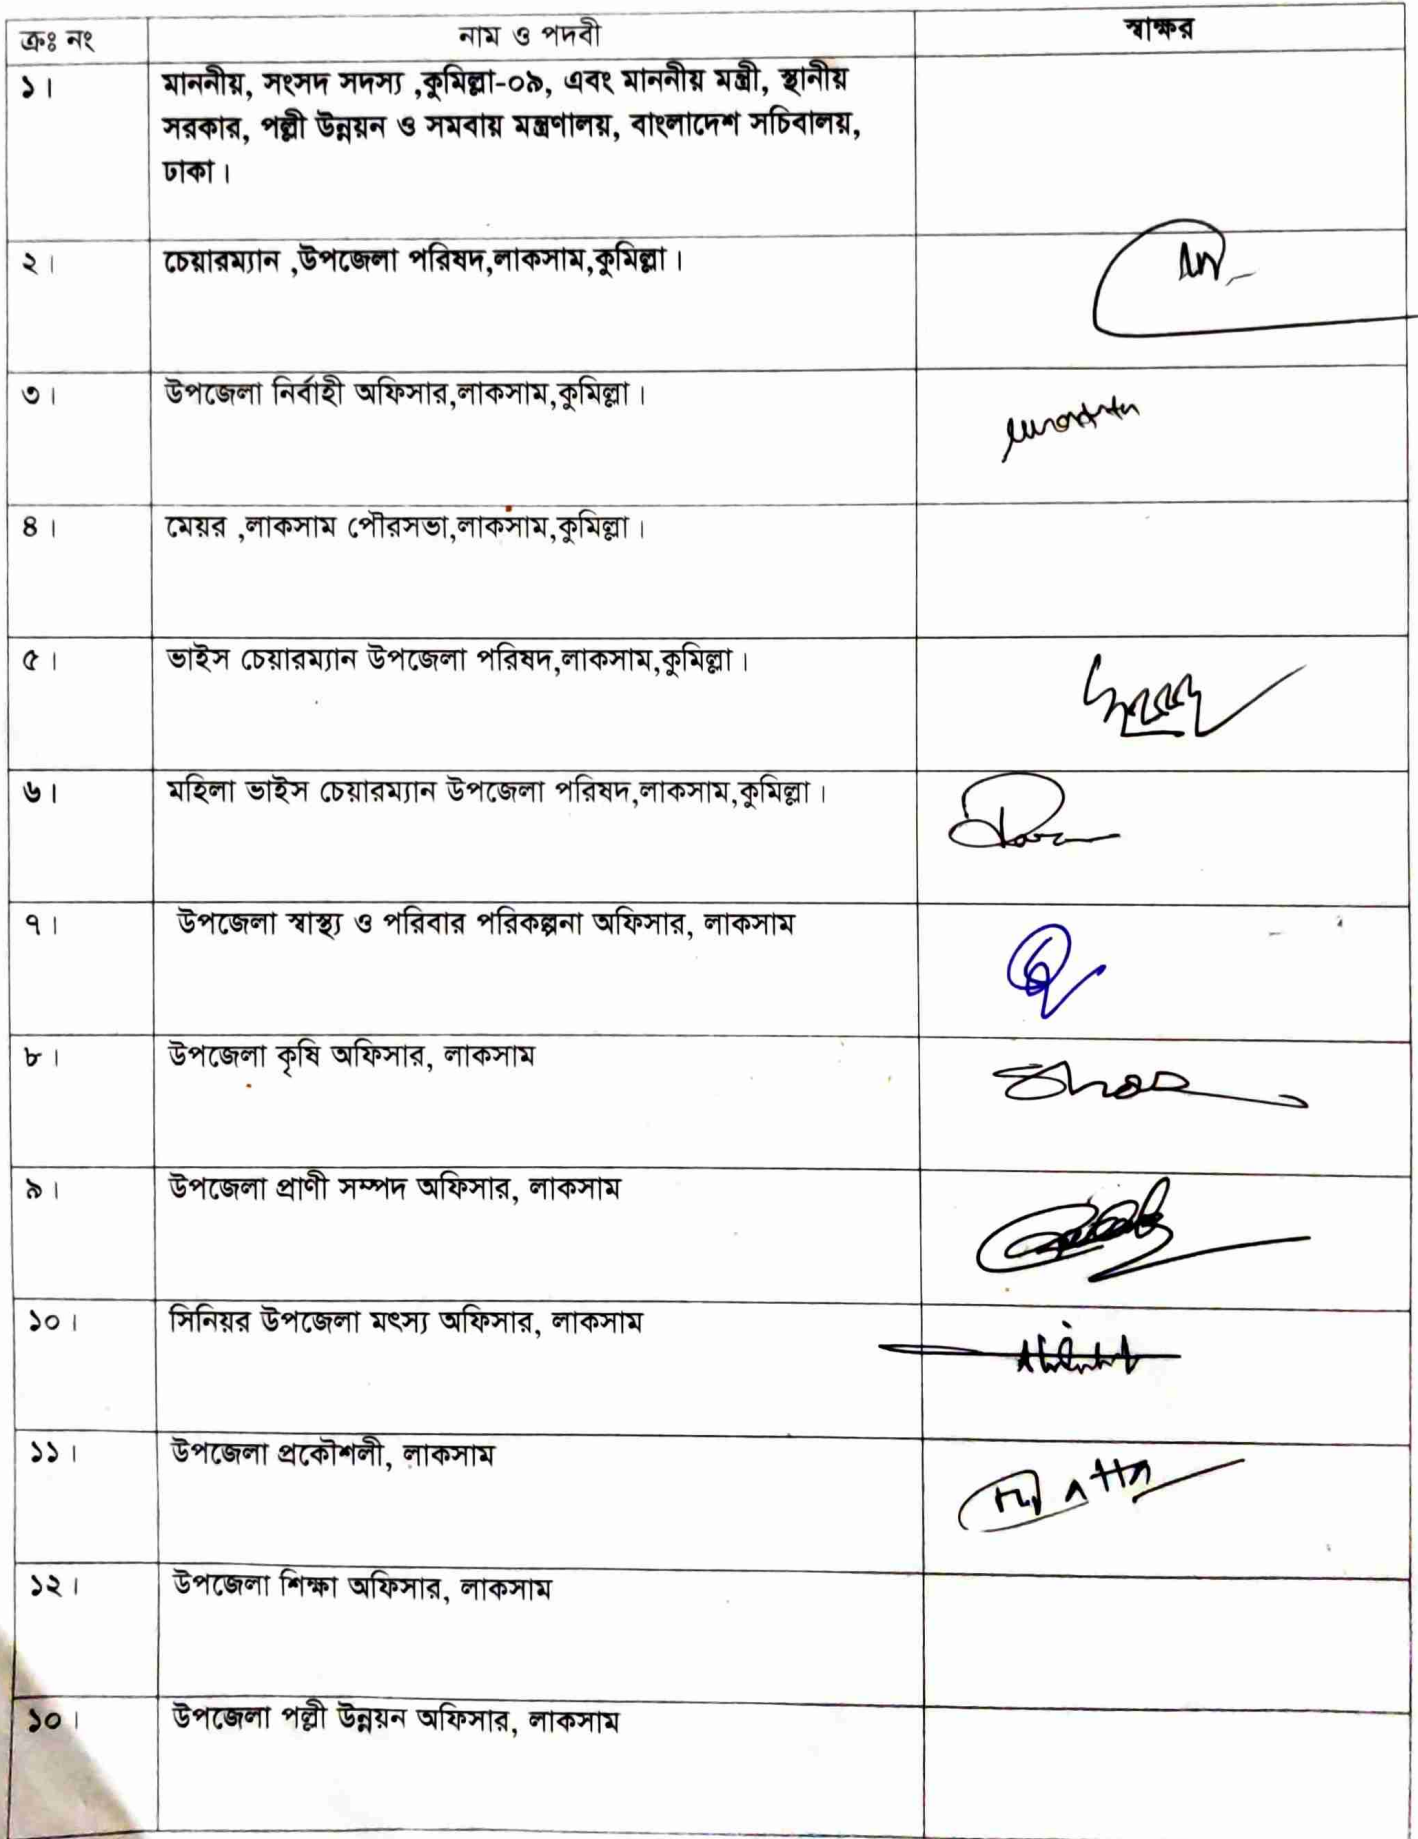 ক্রঃ নং নাম ও পদবী স্বাক্ষর
১। মাননীয়, সংসদ সদস্য ,কুমিল্লা-০৯, এবং মাননীয় মন্ত্রী, স্থানীয়
সরকার, পল্লী উন্নয়ন ও সমবায় মন্ত্রণালয়, বাংলাদেশ সচিবালয়,
ঢাকা।
২। চেয়ারম্যান ,উপজেলা পরিষদ,লাকসাম,কুমিল্লা।
৩। উপজেলা নির্বাহী অফিসার,লাকসাম,কুমিল্লা।
৪। মেয়র ,লাকসাম পৌরসভা,লাকসাম,কুমিল্লা।
৫। ভাইস চেয়ারম্যান উপজেলা পরিষদ,লাকসাম,কুমিল্লা।
৬। মহিলা ভাইস চেয়ারম্যান উপজেলা পরিষদ,লাকসাম,কুমিল্লা।
৭। উপজেলা স্বাস্থ্য ও পরিবার পরিকল্পনা অফিসার, লাকসাম
৮। উপজেলা কৃষি অফিসার, লাকসাম
৯। উপজেলা প্রাণী সম্পদ অফিসার, লাকসাম
১০। সিনিয়র উপজেলা মৎস্য অফিসার, লাকসাম
১১। উপজেলা প্রকৌশলী, লাকসাম
১২। উপজেলা শিক্ষা অফিসার, লাকসাম
১০। উপজেলা পল্লী উন্নয়ন অফিসার, লাকসাম